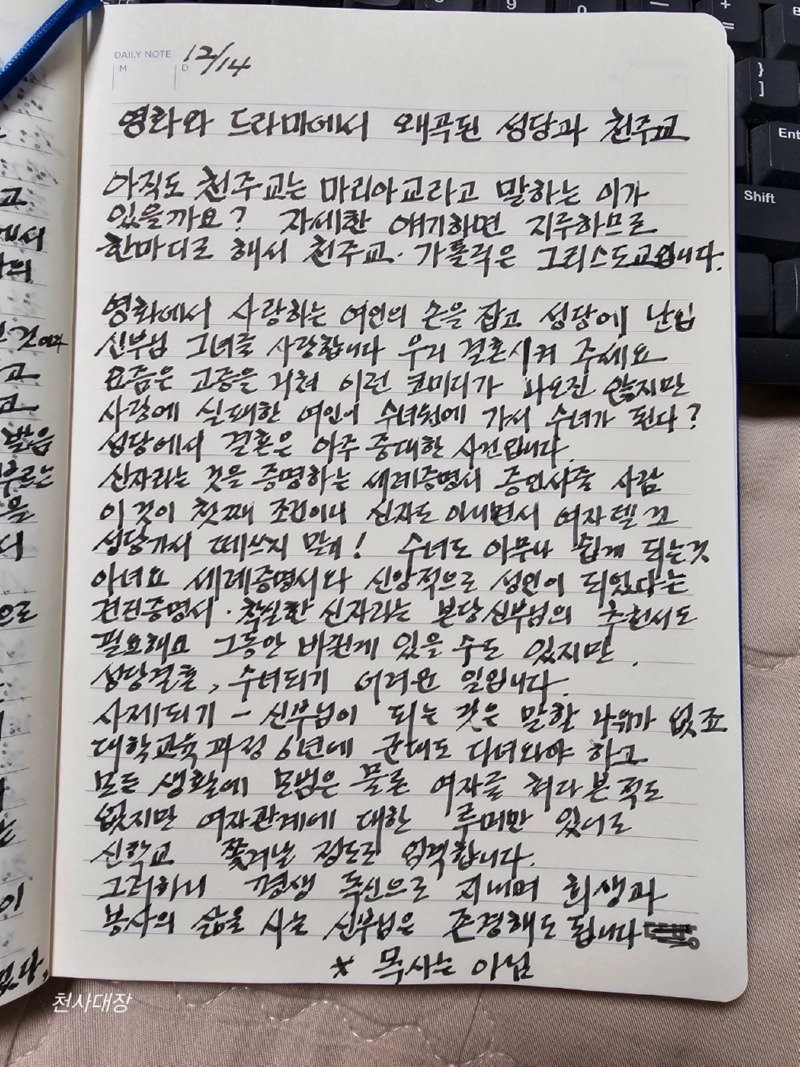 DAILY NOTE
M D 12/14
영화와 드라마에서 왜곡된 성당과 천주교
아직도 천주교는 마리아교라고 말하는 이가
있을까요? 자세한 얘기하면 지루하므로
한마디로 해서 천주교·가톨릭은 그리스도교입니다.
영화에서 사랑하는 여인의 손을 잡고 성당에 난입
신부님 그녀를 사랑합니다 우리 결혼시켜 주세요
요즘은 고증을 거쳐 이런 코미디가 나오진 않지만
사랑에 실패한 여인이 수녀원에 가서 수녀가 된다?
성당에서 결혼은 아주 중대한 사건입니다.
신자라는 것을 증명하는 세례증명서 증인서줄 사람
이것이 첫째 조건이니 신자도 아니면서 여자 델꼬
성당가서 떼쓰지 말기! 수녀도 아무나 쉽게 되는것
아녀요 세례증명서와 신앙적으로 성인이 되었다는
견진증명서·착실한 신자라는 본당신부님의 추천서도
필요해요 그동안 바뀐게 있을 수도 있지만.
성당결혼, 수녀되기 어려운 일입니다.
사제되기 - 신부님이 되는 것은 말할 나위가 없죠
대학교육과정 6년에 군대도 다녀와야 하고
모든 생활에 모범은 물론 여자를 쳐다본 적도
없지만 여자관계에 대한 루머만 있어도
신학교 쫓겨날 정도로 엄격합니다.
그러하니 평생 독신으로 지내며 희생과
봉사의 삶을 사는 신부님은 존경해도 됩니다
* 목사는 아님
천사대장
Shift
Ent
}
]
9
0